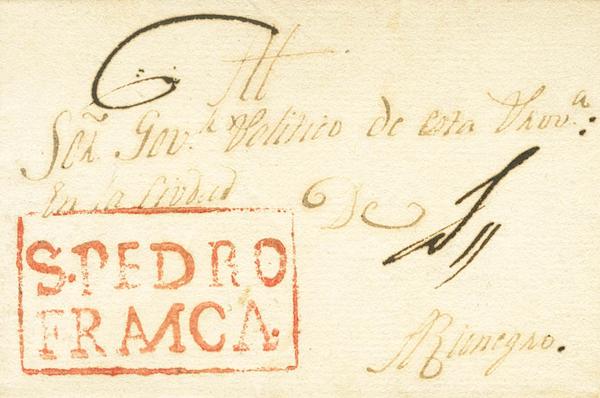 Señ. Gov.r Politico de esta Prov.a:
En la Ciudad De
S. PEDRO
FRANCA.
A Rionegro.